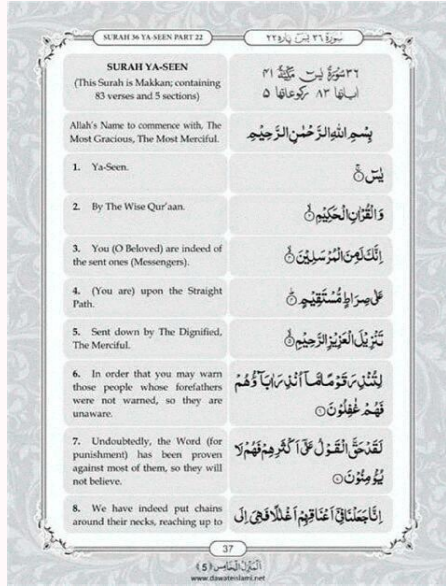 SURAH 36 YA-SEEN PART 22
سورة ٣٦ يس پاره ٢٢
SURAH YA-SEEN
(This Surah is Makkan; containing
83 verses and 5 sections)
٣٦ سورة يس مكية ٤١
اياتها ٨٣ ركوعاتها ٥
Allah's Name to commence with, The
Most Gracious, The Most Merciful.
بِسْمِ اللهِ الرَّحْمٰنِ الرَّحِيْمِ
1. Ya-Seen.
يٰسٓ ۚ
2. By The Wise Qur'aan.
وَالْقُرْاٰنِ الْحَكِيْمِ ۙ
3. You (O Beloved) are indeed of
the sent ones (Messengers).
اِنَّكَ لَمِنَ الْمُرْسَلِيْنَ ۙ
4. (You are) upon the Straight
Path.
عَلٰى صِرَاطٍ مُّسْتَقِيْمٍ ؕ
5. Sent down by The Dignified,
The Merciful.
تَنْزِيْلَ الْعَزِيْزِ الرَّحِيْمِ ۙ
6. In order that you may warn
those people whose forefathers
were not warned, so they are
unaware.
لِتُنْذِرَ قَوْمًا مَّاۤ اُنْذِرَ اٰبَآؤُهُمْ
فَهُمْ غٰفِلُوْنَ
7. Undoubtedly, the Word (for
punishment) has been proven
against most of them, so they will
not believe.
لَقَدْ حَقَّ الْقَوْلُ عَلٰۤى اَكْثَرِهِمْ فَهُمْ لَا
يُؤْمِنُوْنَ
8. We have indeed put chains
around their necks, reaching up to
اِنَّا جَعَلْنَا فِيْۤ اَعْنَاقِهِمْ اَغْلٰلًا فَهِيَ اِلَى
37
المنزل الخامس (5)
www.dawateislami.net